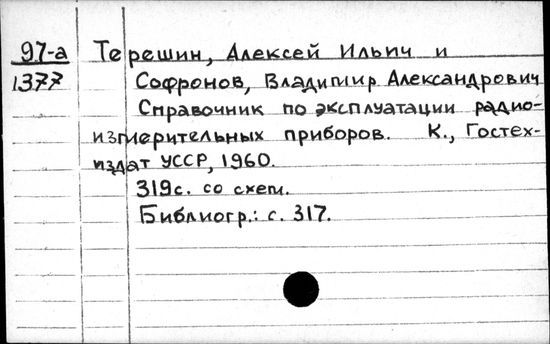 97-а Терешин, Алексей Ильич и
1377 Софронов, Владимир Александрович
Справочник по эксплуатации радио-
измерительных приборов. К., Гостех-
издат УССР, 1960.
319с. со схем.
Библиогр.: с. 317.